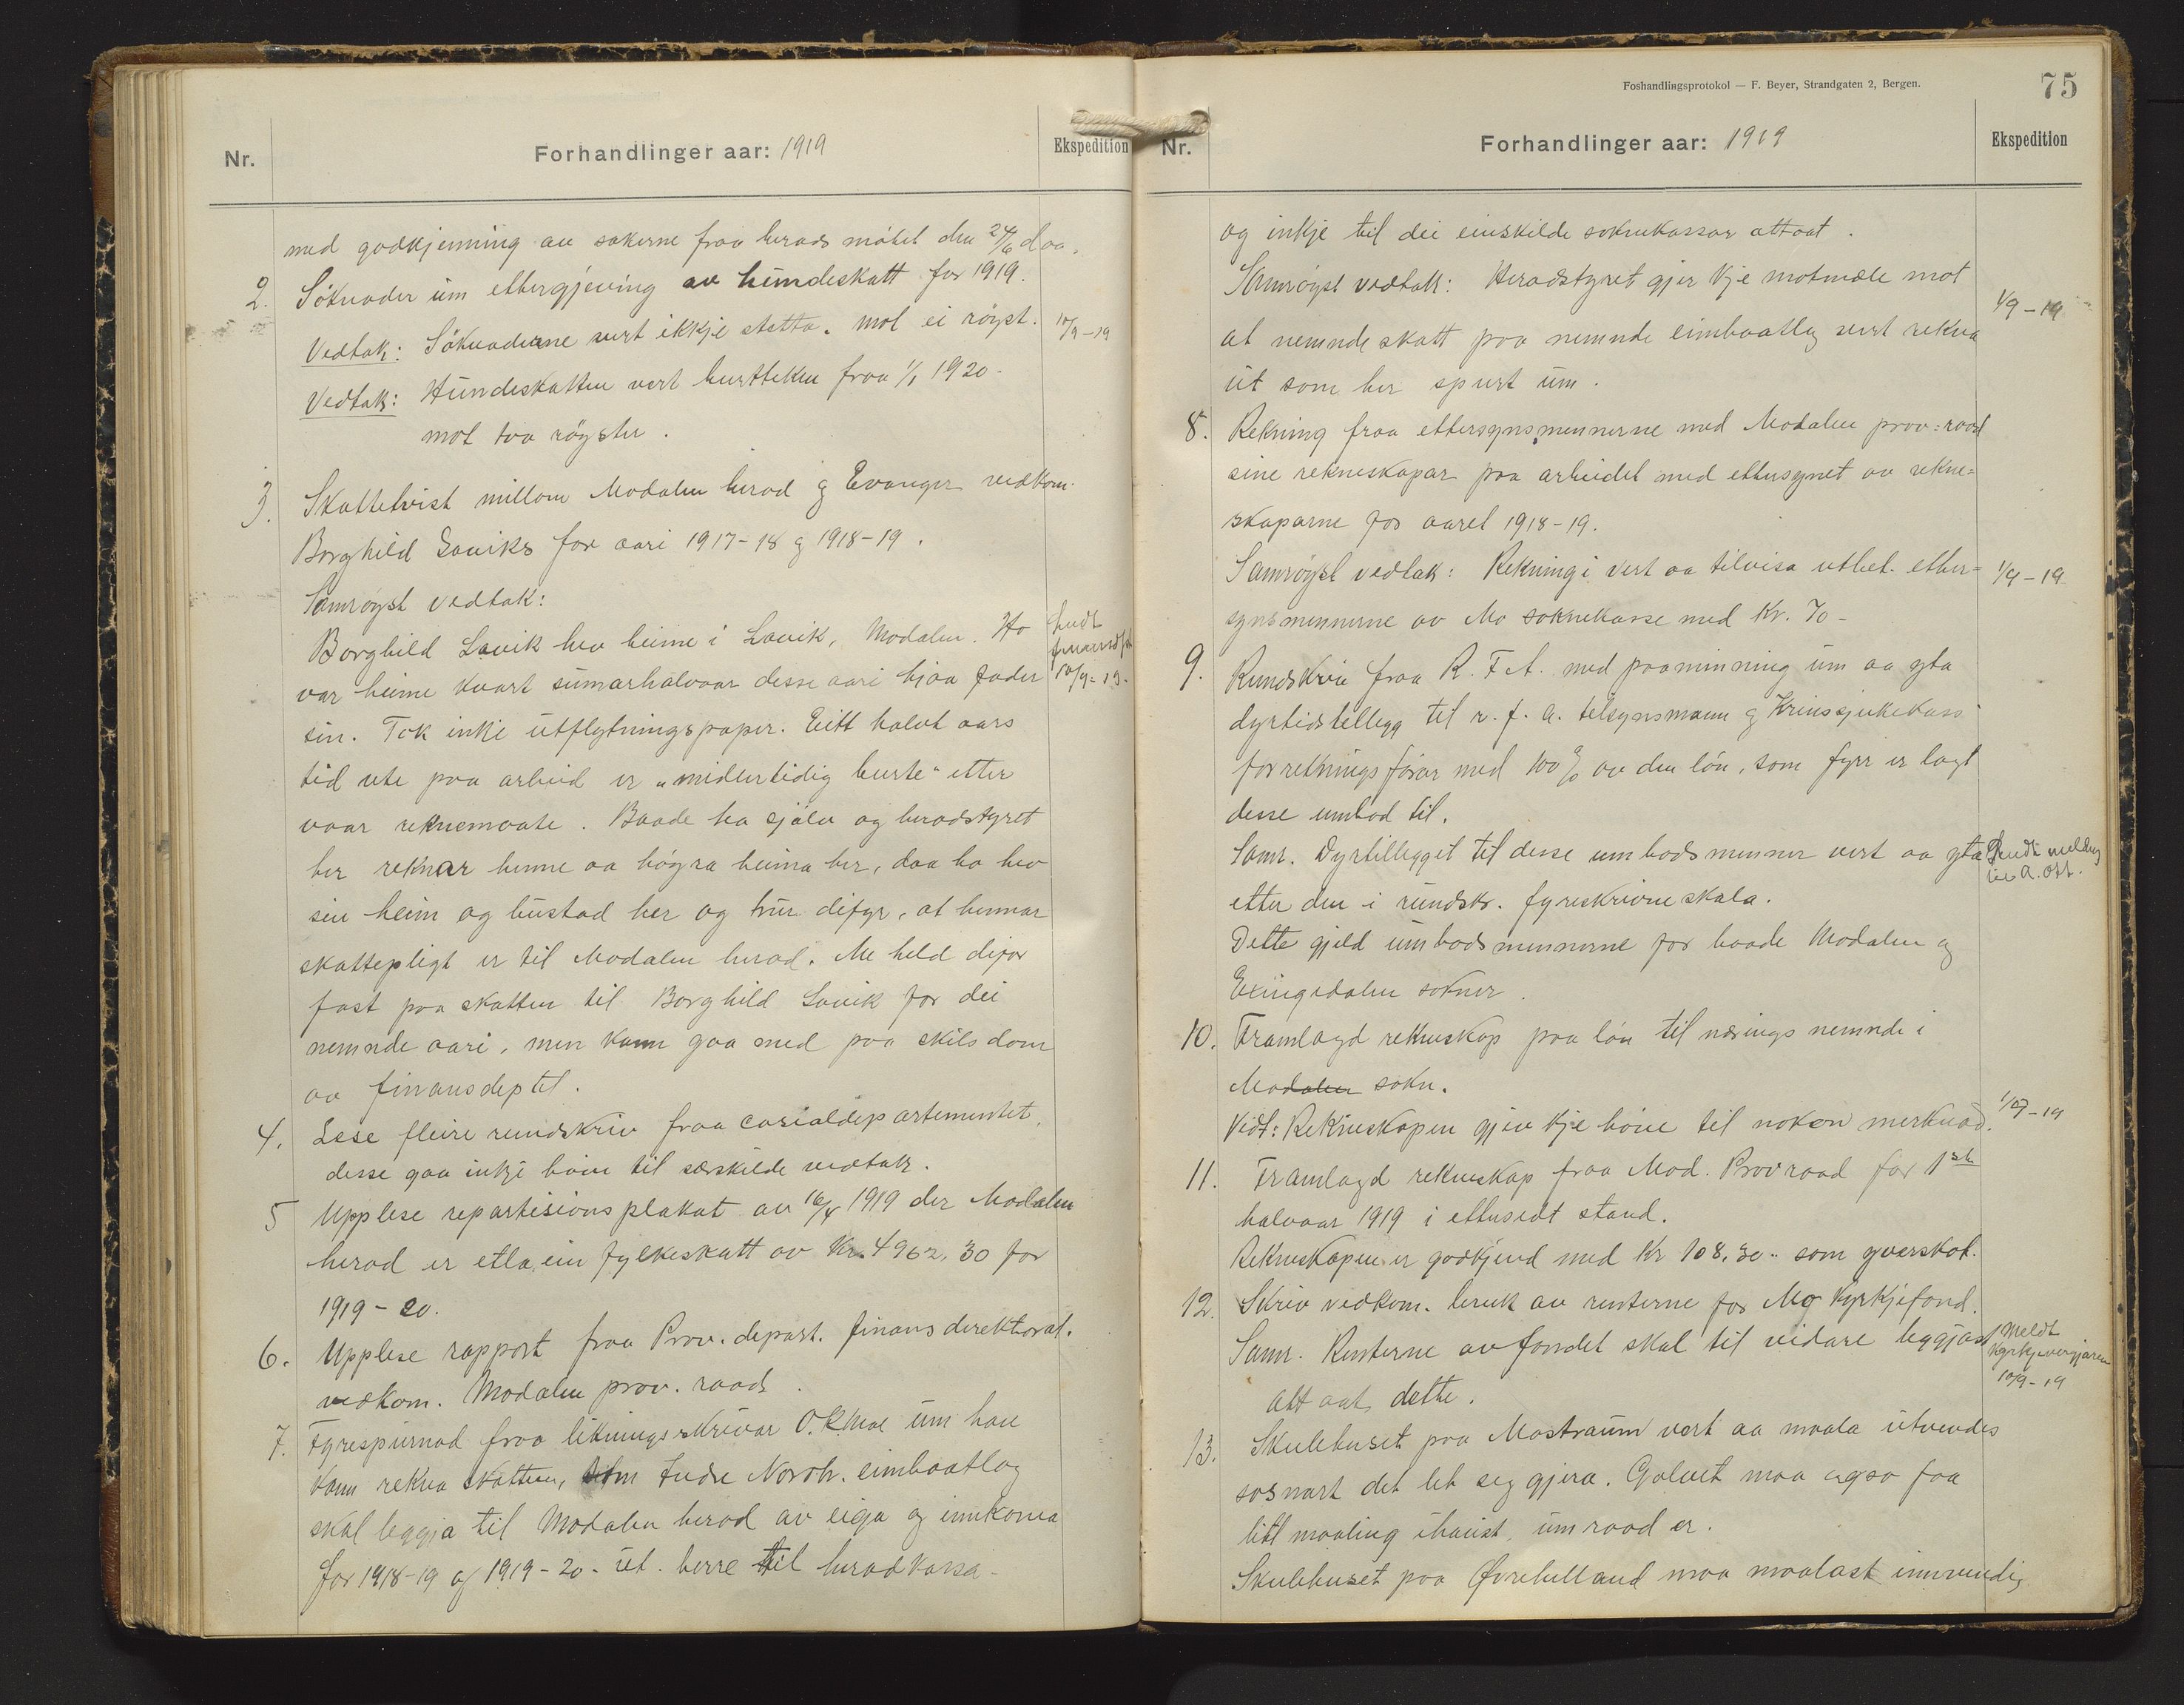 Nr.
Forhandlinger aar: 1919
Ekspedition
med godkjenning av sakerne fraa herads mötet den 24/6 d aa.
2. Söknader um ettergjeving av hundeskatt for 1919.
Vedtak: Söknaderne vert ikkje stetta. mot ei röyst.
10/9-19
Vedtak: Hundeskatten vert burtteken fraa 1/1 1920-
mot tvo röyster.
3. Skattetvist millom Modalen herad og Evanger vedkom.
Borghild Laviks for aari 1917-18 og 1918-19.
Samröyst vedtak:
Borghild Lavik hev heime i Lavik, Modalen. Ho
Sendt
var heime kvart sumarhalvaar desse aari hjaa fader
10/9-19.
sin. Tok inkje utflytningspapir. Eitt halvt aars
tid ute paa arbeid er "midlertidig burte" etter
vaar reknemaate. Baade ho sjölv og heradstyret
her reknar henne aa höyra heima her, daa ho hev
sin heim og bustad her og trur difyr, at hennar
skattepligt er til Modalen herad. Me held difor
fast paa skatten til Borghild Lavik for dei
nemnde aari, men kann gaa med paa skilsdom
av finansdeptet.
4. Lese fleire rundskriv fraa cosialdepartementet,
desse gav inkje höve til særskilde vedtak.
5 Upplese repartisionsplakat av 16/4 1919 der Modalen
herad er etla ein fylkeskatt av Kr. 4962,30 for
1919-20.
6. Upplese rapport fraa Prov. depart. finans direktorat.
vedkom. Modalen prov. raad.
7. Fyrespurnad fraa likningsskrivar O. R. Moe um han
kann rekna skatten, som Indre Nordh. eimbaatlag
skal leggja til Modalen herad av eiga og innkoma
for 1918-19 og 1919-20. ut. berre til heradkassa-
Foshandlingsprotokol — F. Beyer, Strandgaten 2, Bergen.
75
Nr.
Forhandlinger aar: 1919
Ekspedition
og inkje til dei einskilde soknekassar attaat.
Samröyst vedtak: Heradstyret gjer kje motmæle mot
1/9-19
at nemnde skatt paa nemnde eimbaatlag vert rekna
ut som her spurt um.
8. Rekning fraa ettersynsmennerne med Modalen prov=raad
sine rekneskapar paa arbeidet med ettersynet av rekne=
skaparne for aaret 1918-19.
Samröyst vedtak: Rekningi vert aa tilvisa utbet. etter=
1/9-19
synsmennerne av Mo soknekasse med Kr. 70-
9. Rundskriv fraa R. F. A. med paaminning um aa yta
dyrtidstillegg til r. f. a. tilsynsmann og Krinssjukekass
forretningsförar med 100 % av den lön, som fyrr er lagt
desse umbod til.
Samr. Dyrtillegget til desse umbodsmenner vert aa yta
Sendt melding
etter den i rundskr. fyreskrivne skala.
Dette gjeld umbodsmennerne for baade Modalen og
Exingedalen sokner.
10. Framlagd rekneskap paa lön til nærings nemnde i
Modalen sokn.
Vedt: Rekneskapen gjev kje höve til nokon merknad.
1/9-19
11. Framlagd rekneskap fraa Mod. Provraad for 1ste
halvaar 1919 i ettersedt stand.
Rekneskapen er godkjend med Kr 108,30.- som yverskot.
12. Skriv vedkom. bruk av renterne for Mo Kyrkjefond.
Samr. Renterne av fondet skal til vidare leggjast
Meldt
Kyrkjeverjaren
10/9-19
att aat dette.
13. Skulehuset paa Mostraum vert aa maala utvendes
sosnart det let seg gjera. Golvet maa ogso faa
litt maaling ihaust, um raad er.
Skulehuset paa Øvrehelland maa maalast innvendig